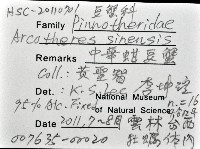 HSC-20110701 豆蟹科
Family Pinnotheridae
Arcotheres sinensis
Remarks 中華蚶豆蟹
Coll.: 黃
Det.: K-S. Lee 李坤瑄
95% Alc. Fixed National Museum n.=16
of Natural Science
Date 2011.7-8月 雲林 台西
007635-00020